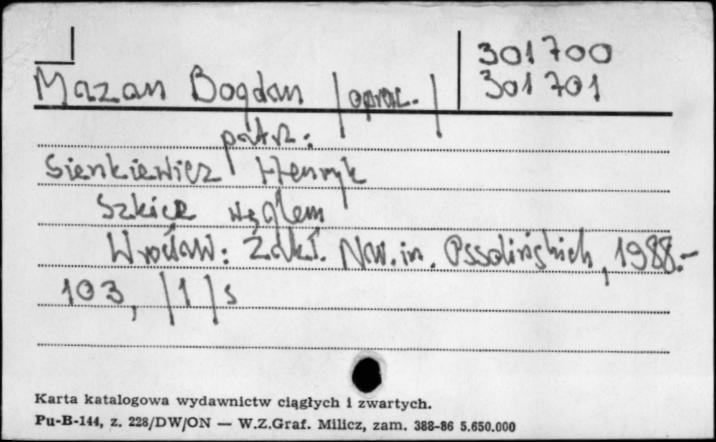 301700
Mazan Bogdan /oprac./
301701
patrz:
Sienkiewicz Henryk
Szkice węglem
Wrocław: Zakł. Nar. im. Ossolińskich, 1988.-
103, /1/ s
Karta katalogowa wydawnictw ciągłych i zwartych.
Pu-B-144, z. 228/DW/ON — W.Z.Graf. Milicz, zam. 388-86 5.650.000